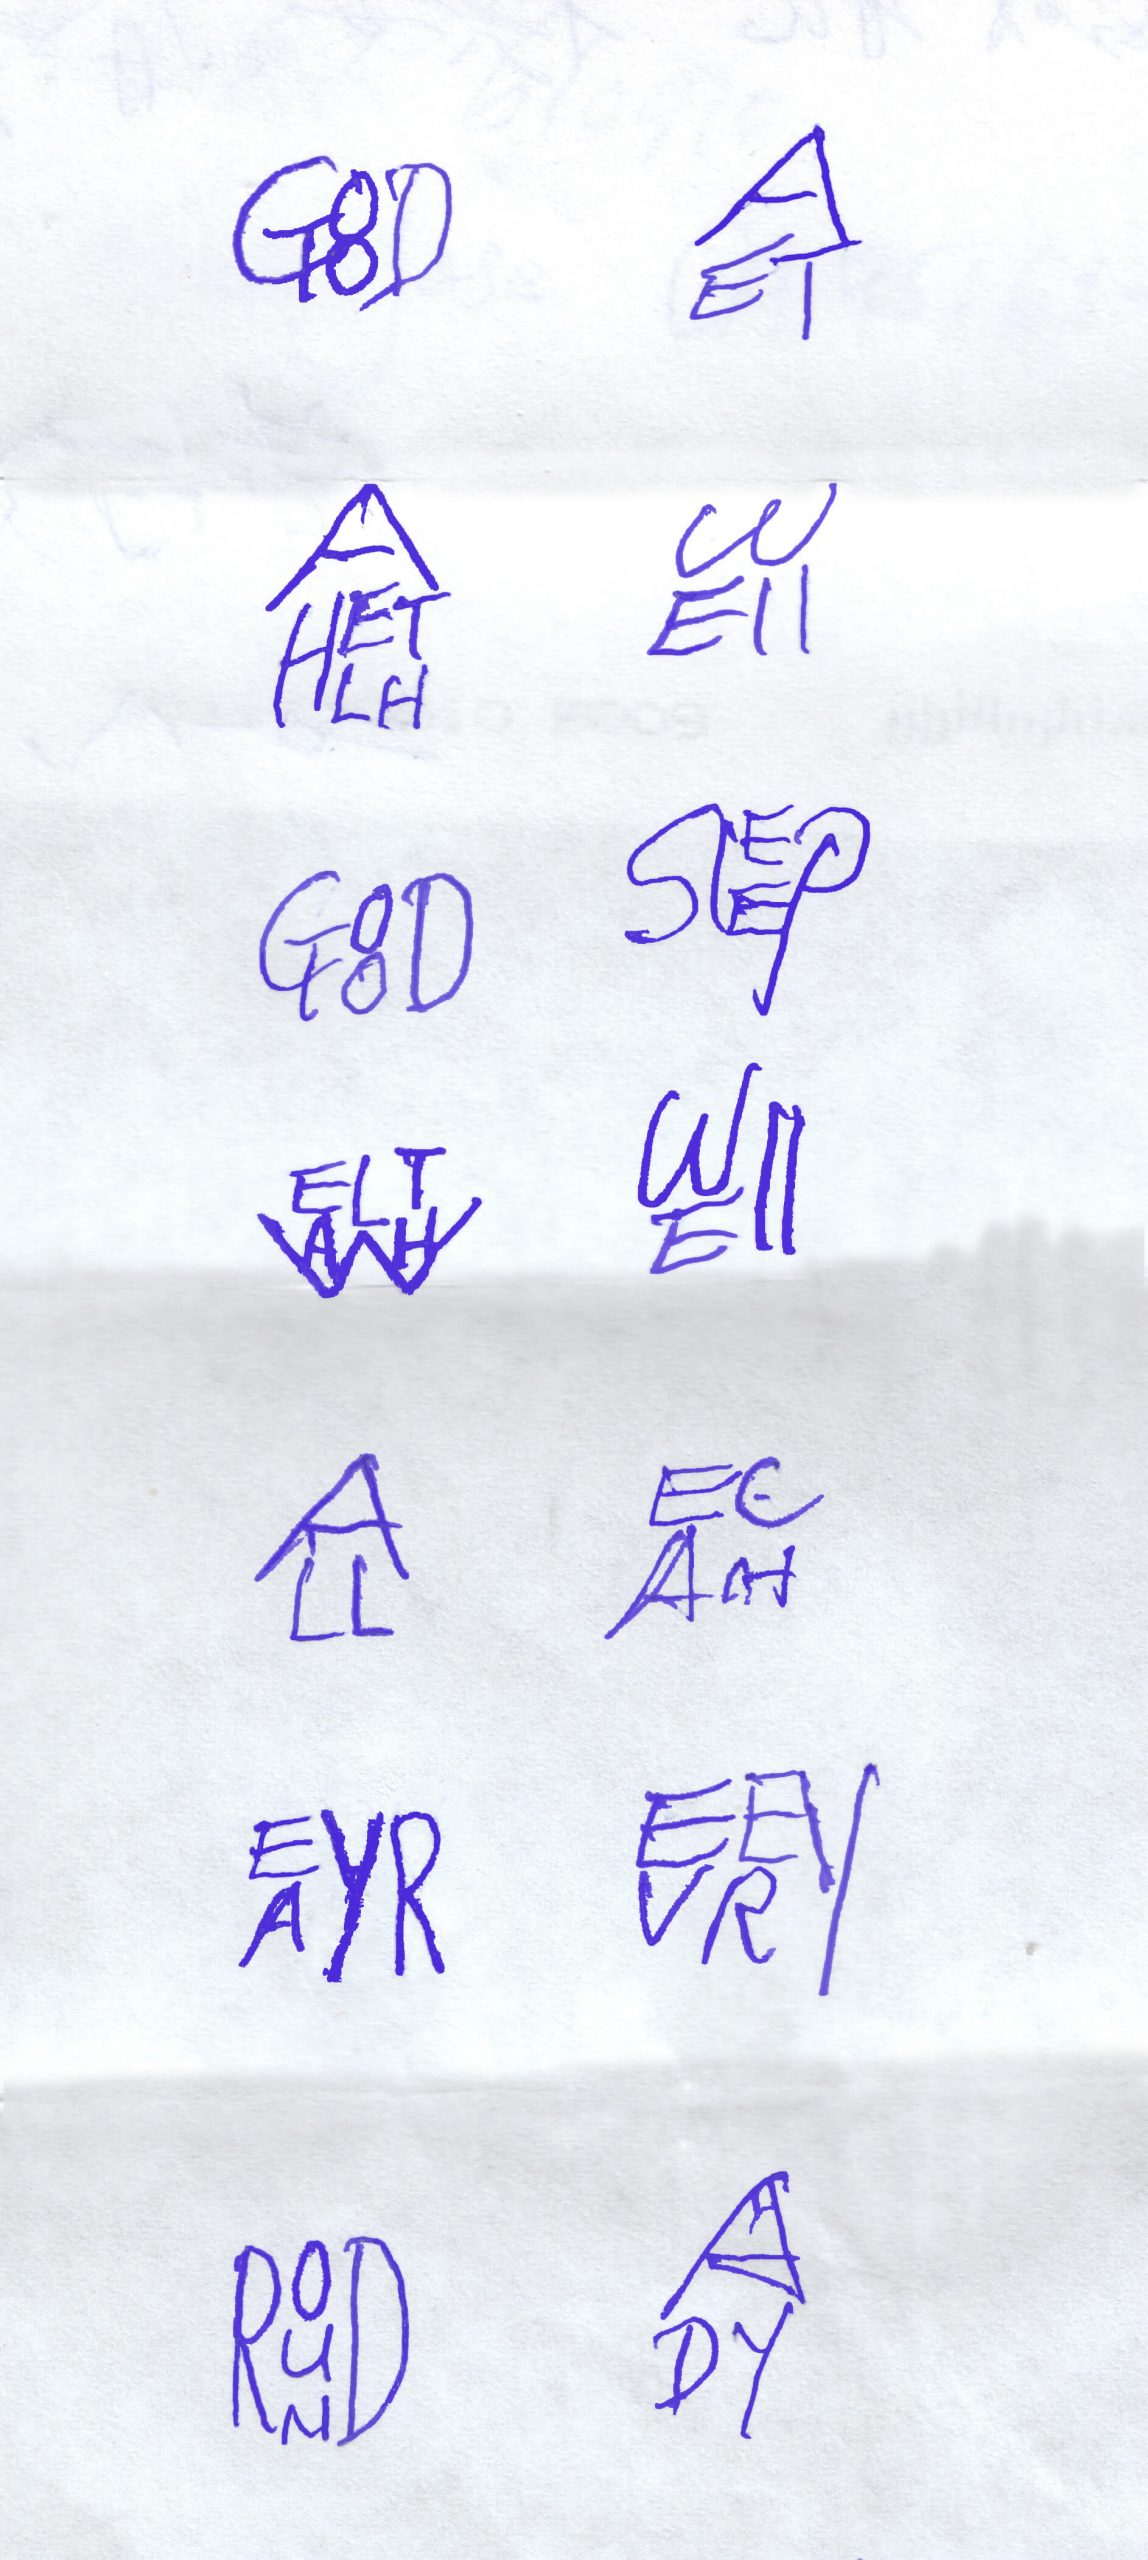 GOOD EAT
HEALTH WEll
GOOD SLEEP
WEALTH WEll
ALL EACH
YEAR EVERY
ROUND DAY